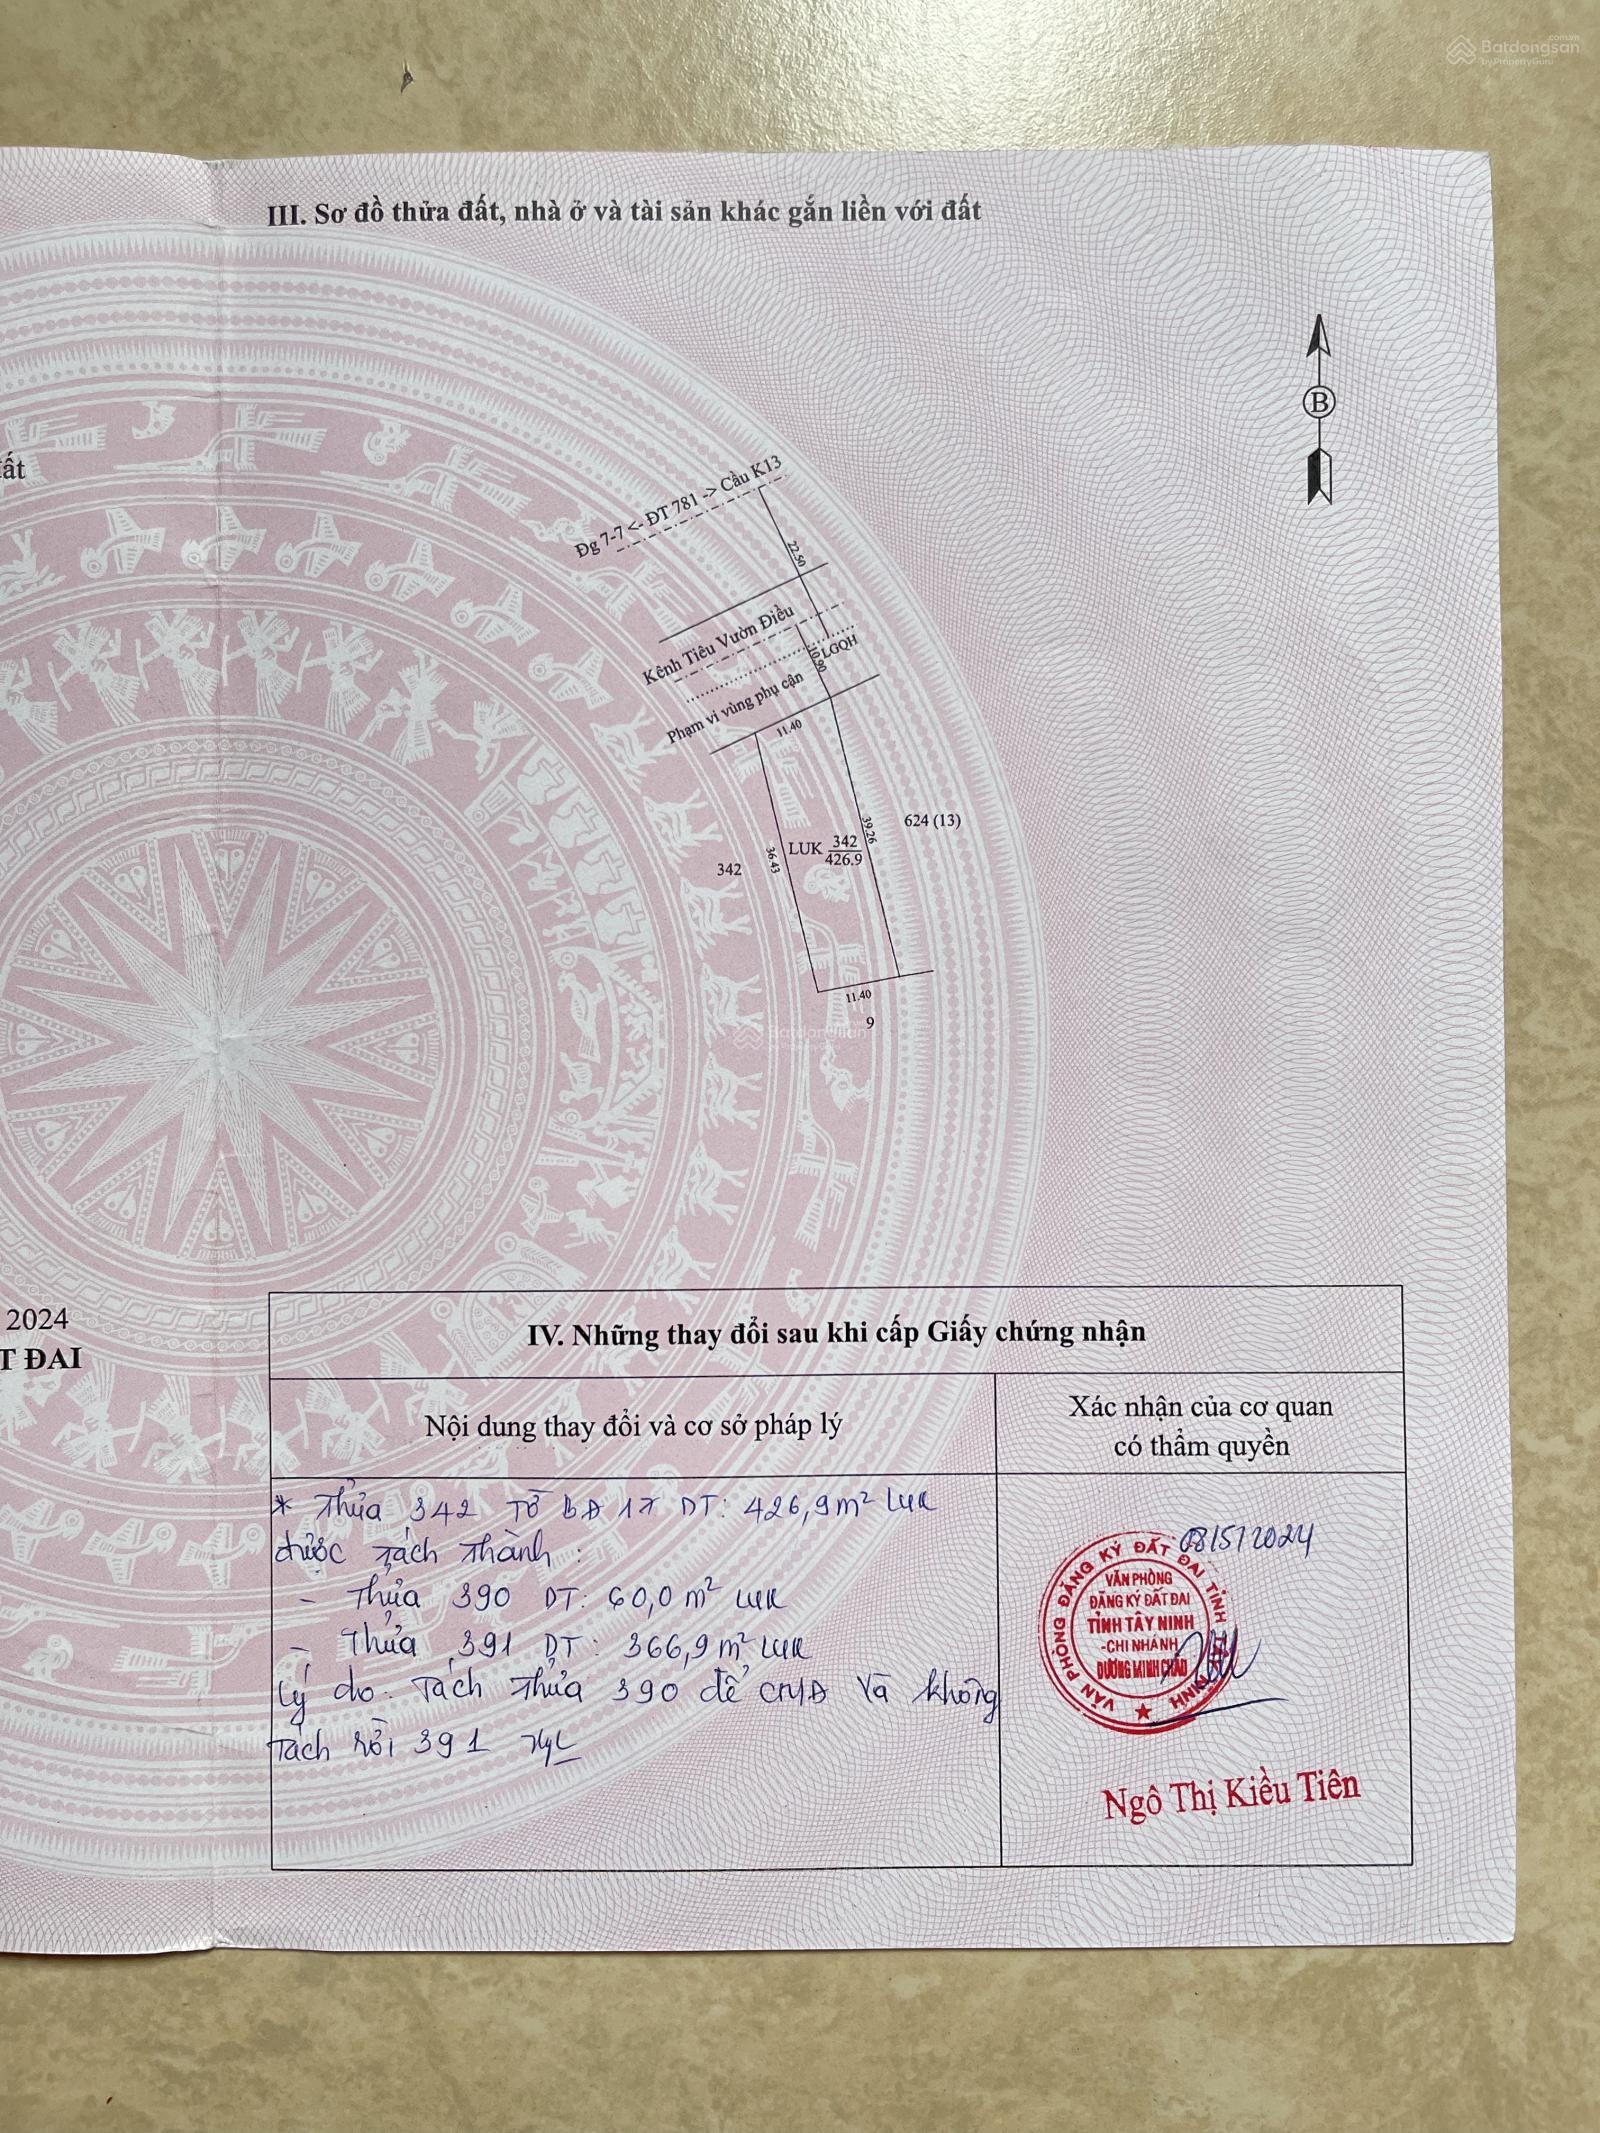 Batdongsan
.com.vn
by PropertyGuru
III. Sơ đồ thửa đất, nhà ở và tài sản khác gắn liền với đất
B
ất
Đg 7-7 <- ĐT 781 -> Cầu K13
22.50
Kênh Tiêu Vườn Điều
LGQH
10.90
Phạm vi vùng phụ cận
11.40
342
36.43
LUK 342
426.9
39.26
624 (13)
11.40
9
Batdongsan
2024
T ĐAI
IV. Những thay đổi sau khi cấp Giấy chứng nhận
Nội dung thay đổi và cơ sở pháp lý
Xác nhận của cơ quan
có thẩm quyền
* Thửa 342 Tờ BĐ 17 DT: 426,9m² LUK
được tách thành:
- Thửa 390 DT: 60,0m² LUK
- Thửa 391 DT: 366,9m² LUK
Lý do: Tách thửa 390 để CMĐ và không
tách rời 391
08/5/2024
VĂN PHÒNG ĐĂNG KÝ ĐẤT ĐAI TỈNH TÂY NINH
VĂN PHÒNG
ĐĂNG KÝ ĐẤT ĐAI
TỈNH TÂY NINH
-CHI NHÁNH
DƯƠNG MINH CHÂU
Ngô Thị Kiều Tiên